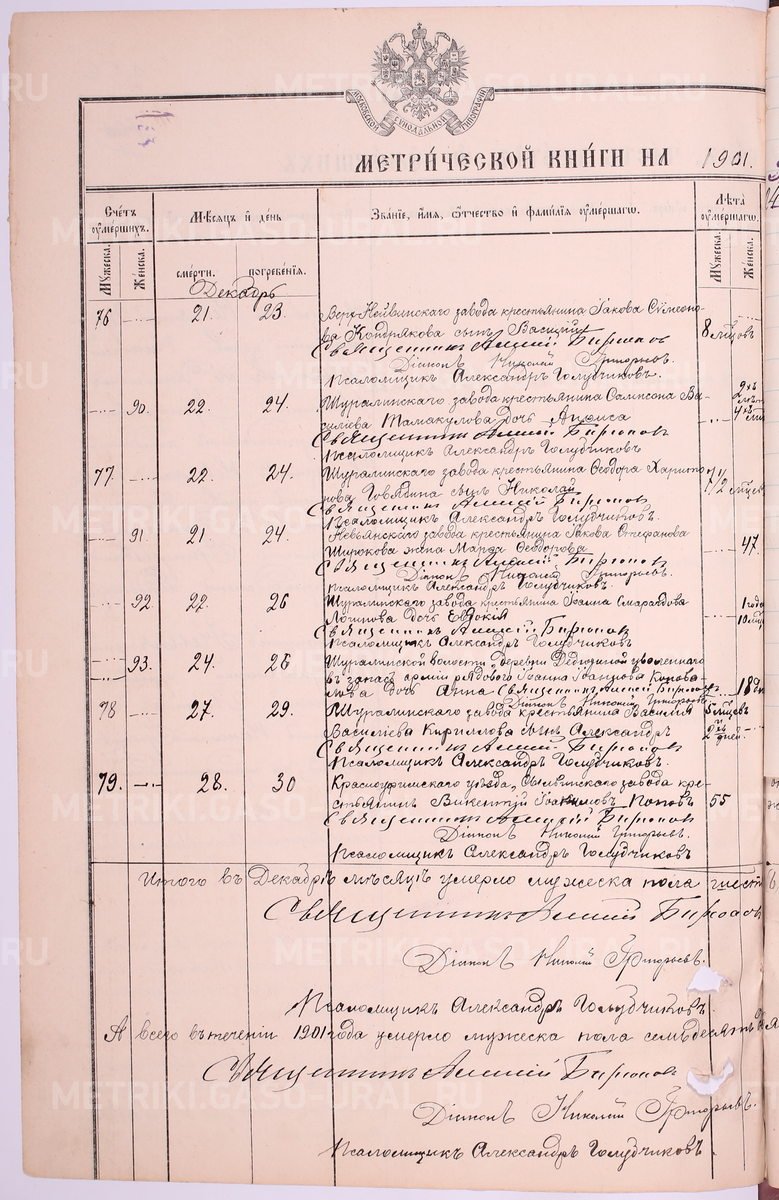 МОСКОВСКОЙ СѴНОДАЛЬНОЙ ТИПОГРАФІИ
МЕТРИ́ЧЕСКОЙ КНИ́ГИ НА 1901.
Сче́тъ ᲂу҆ме́ршихъ.
Мѣ́сѧцъ и҆ де́нь
Зва́нїе, и҆́мѧ, ѻ҆́тчество и҆ фами́лїѧ ᲂу҆ме́ршагѡ.
Лѣ́та ᲂу҆ме́ршагѡ.
Мꙋ́жеска.
Же́нска.
сме́рти.
погребе́нїѧ.
Мꙋ́жеска.
Же́нска.
Декабрь
76 21. 23. Верх-Нейвинскаго завода крестьянина Іакова Сѵмеоно-
ва Кондрякова сынъ Василій 8 м͠цевъ
Священникъ Алексій Бирюковъ
Діаконъ Николай Григорьевъ.
Псаломщикъ Александръ Голубчиковъ.
90. 22. 24. Шуралинскаго завода крестьянина Сампсона Ва-
сильева Мамакулова дочь Анфиса
Священникъ Алексій Бирюковъ
Псаломщикъ Александръ Голубчиковъ
77 22. 24. Шуралинскаго завода крестьянина Ѳеодора Харито-
нова Говядина сынъ Николай
Священникъ Алексій Бирюковъ
Псаломщикъ Александръ Голубчиковъ.
91. 21 24. Невьянскаго завода крестьянина Іакова Стефанова
Широкова жена Марѳа Ѳеодорова 47
Священникъ Алексій Бирюковъ
Діаконъ Николай Григорьевъ.
Псаломщикъ Александръ Голубчиковъ.
92 22. 26 Шуралинскаго завода крестьянина Іоанна Смарагдова
Логинова дочь Евдокія
Священникъ Алексій Бирюковъ
Псаломщикъ Александръ Голубчиковъ
93. 24. 26 Шуралинской волости деревни уволеннаго
въ запасъ арміи рядового Іоанна Іоаннова Конова-
лова дочь Анна Священникъ Алексій Бирюковъ
Діаконъ Николай Григорьевъ
78 27. 29. Шуралинскаго завода крестьянина Василія
Василіева Кириллова сынъ Александръ
Священникъ Алексій Бирюковъ
Псаломщикъ Александръ Голубчиковъ.
79. 28. 30 Красноуфимскаго уѣзда, Сылвинскаго завода кре-
стьянинъ Викентій Іоакимовъ Поповъ 55
Священникъ Алексій Бирюковъ
Діаконъ Николай Григорьевъ.
Псаломщикъ Александръ Голубчиковъ
Итого въ Декабрѣ мѣсяцѣ умерло мужеска пола шесть
Священникъ Алексій Бирюковъ
Діаконъ Николай Григорьевъ.
Псаломщикъ Александръ Голубчиковъ.
А всего въ теченіи 1901 года умерло мужеска пола семьдесятъ
Священникъ Алексій Бирюковъ
Діаконъ Николай Григорьевъ.
Псаломщикъ Александръ Голубчиковъ.
METRIKI.GASO-URAL.RU